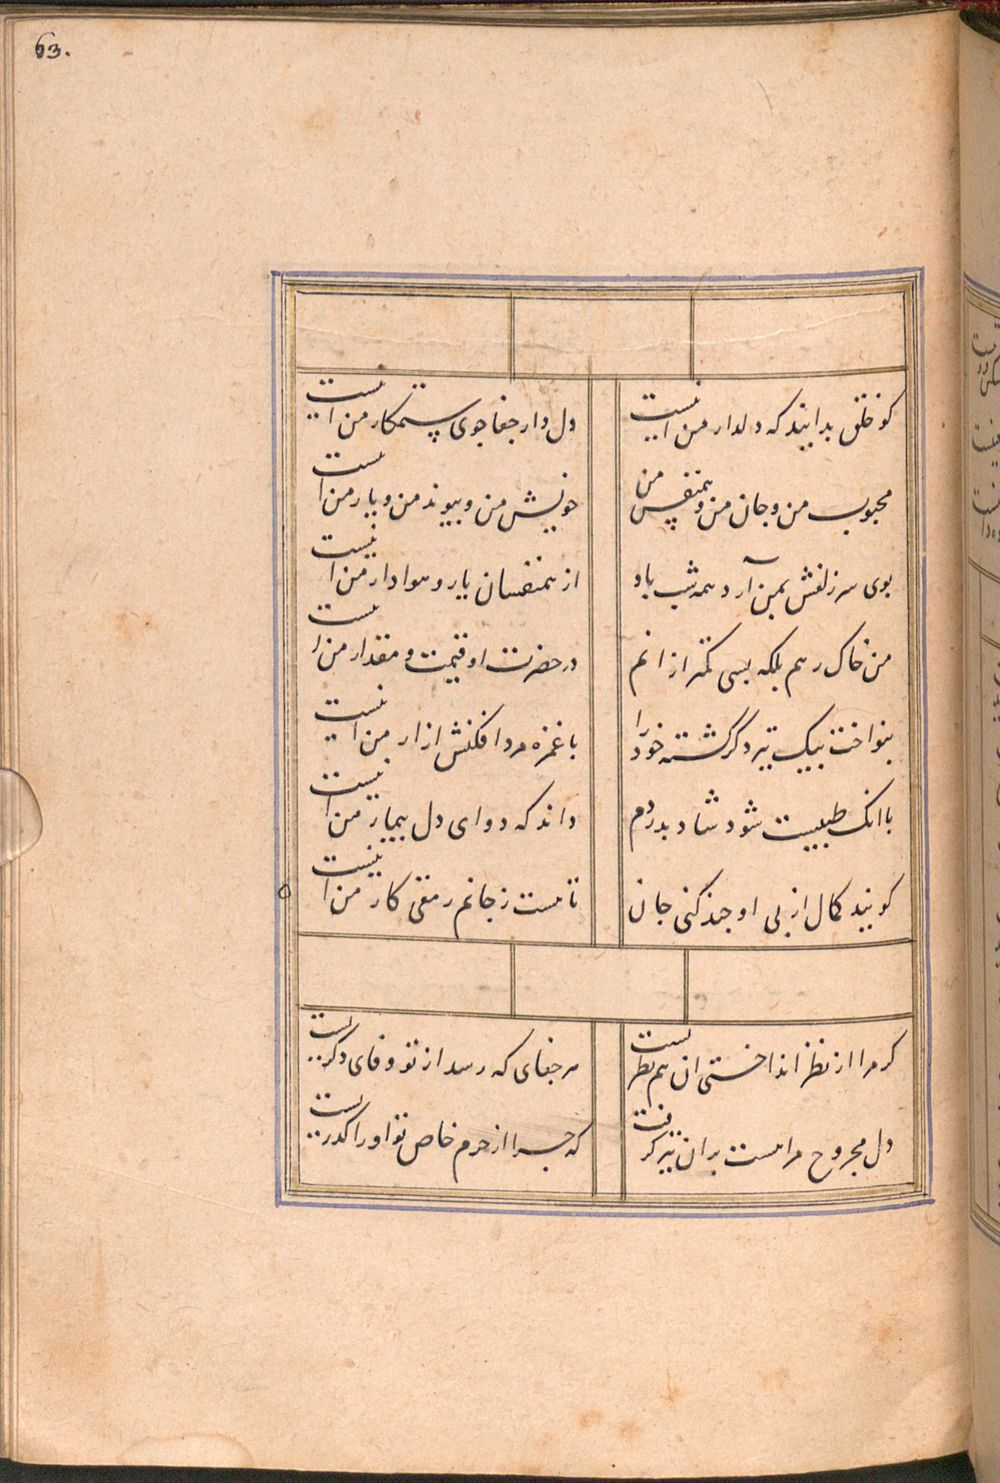 63.
کو خلق بدانید که دلدار من اینست
دل دار جفا جوی ستمکار من اینست
محبوب من و جان من و همنفس من
خویش من و پیوند من و یار من اینست
بوی سر زلفش بمن آرد همه شب باد
از همنفسان یار و هوادار من اینست
من خاک رهم بلکه بسی کمتر از انم
در حضرت او قیمت و مقدار من اینست
بنواخت بیک تیر دگر کشته خود را
با غمزه مردافکنش ازار من اینست
با انک طبیبست شود شاد بدردم
داند که دوای دل بیمار من اینست
کویند کمال از پی او چند کنی جان
تا هست ز جانم رمقی کار من اینست
کر مرا از نظر انداختی ان هم نظریست
هر جفای که رسد از تو وفای دکریست
دل مجروح مرا هست بران تیر گرفت
که چرا از حرم خاص تو او را کذریست